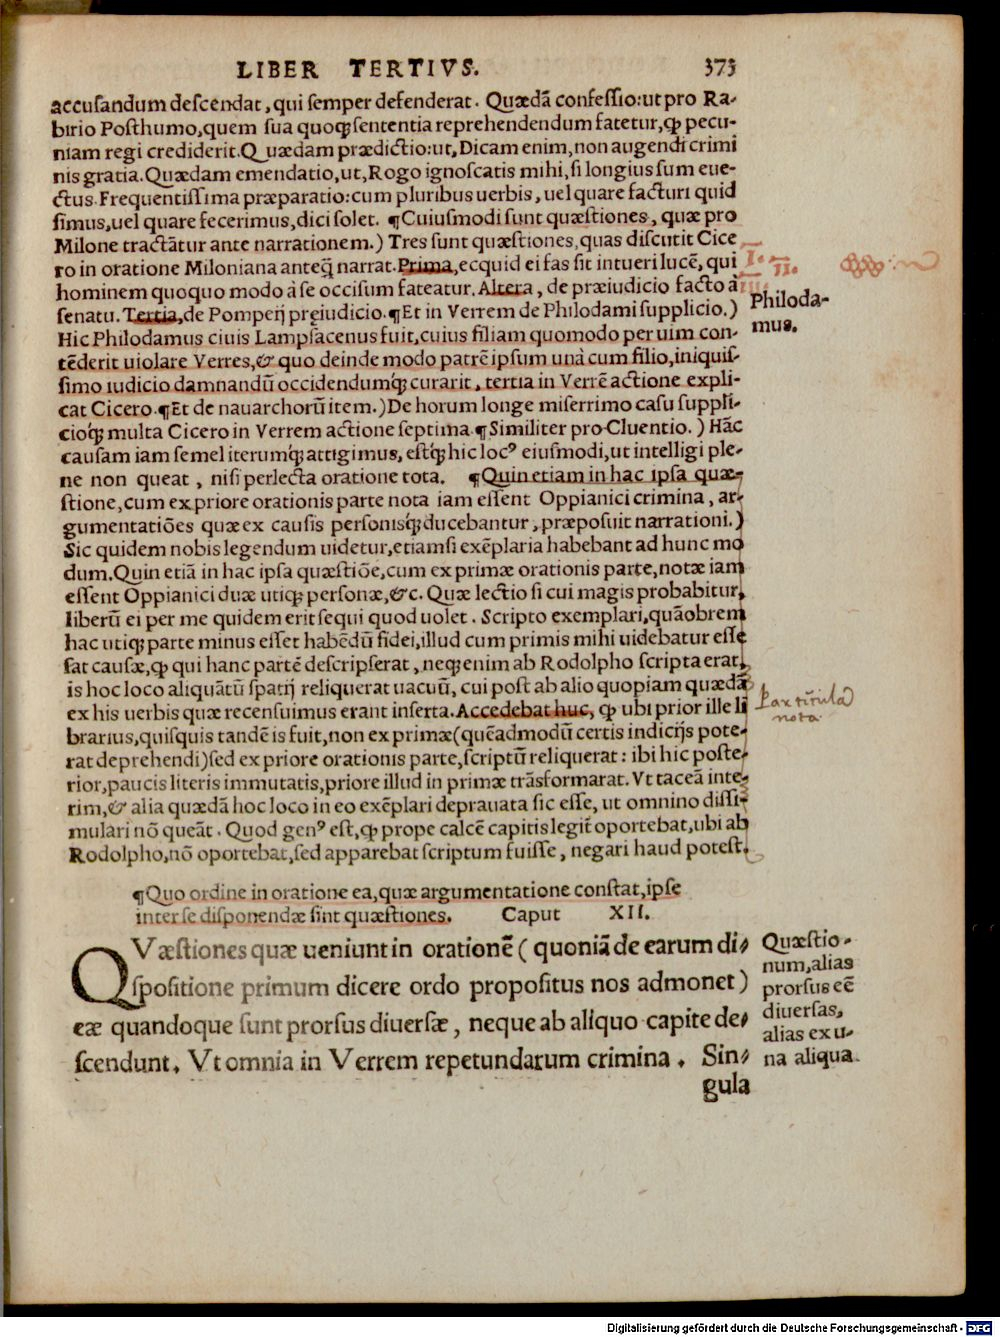 LIBER TERTIVS. 373
accusandum descendat, qui semper defenderat. Quædã confessio:ut pro Ra-
birio Posthumo,quem sua quoq; sententia reprehendendum fatetur,ꝙ pecu-
niam regi crediderit.Quædam prædictio:ut,Dicam enim,non augendi crimi
nis gratia.Quædam emendatio,ut,Rogo ignoscatis mihi,si longius sum eue-
ctus.Frequentissima præparatio:cum pluribus uerbis, uel quare facturi quid
simus,uel quare fecerimus,dici solet. ¶Cuiusmodi sunt quæstiones, quæ pro
Milone tractãtur ante narrationem.) Tres sunt quæstiones,quas discutit Cice
ro in oratione Miloniana anteq̃ narrat.Prima,ecquid ei fas sit intueri lucẽ, qui
hominem quoquo modo à se occisum fateatur.Altera, de præiudicio facto à
senatu.Tertia,de Pompeij pręiudicio.¶Et in Verrem de Philodami supplicio.)
Hic Philodamus ciuis Lampsacenus fuit,cuius filiam quomodo per uim con-
tẽderit uiolare Verres,& quo deinde modo patrẽ ipsum unà cum filio,iniquis-
simo iudicio damnandũ occidendumq́; curarit, tertia in Verrẽ actione expli-
cat Cicero.¶Et de nauarchorũ item.)De horum longe miserrimo casu suppli-
cioq́; multa Cicero in Verrem actione septima.¶Similiter pro Cluentio.) Hãc
causam iam semel iterumq́; attigimus, estq́; hic locꝰ eiusmodi,ut intelligi ple-
ne non queat, nisi perlecta oratione tota. ¶Quin etiam in hac ipsa quæ-
stione,cum ex priore orationis parte nota iam essent Oppianici crimina, ar-
gumentatiões quæ ex causis personisq́; ducebantur, præposuit narrationi.)
Sic quidem nobis legendum uidetur,etiamsi exẽplaria habebant ad hunc mo
dum.Quin etiã in hac ipsa quæstiõe,cum ex primæ orationis parte,notæ iam
essent Oppianici duæ utiq; personæ,&c. Quæ lectio si cui magis probabitur,
liberũ ei per me quidem erit sequi quod uolet. Scripto exemplari,quãobrem
hac utiq; parte minus esset habẽdũ fidei,illud cum primis mihi uidebatur esse
sat causæ,ꝙ qui hanc partẽ descripserat, neq; enim ab Rodolpho scripta erat,
is hoc loco aliquãtũ spatij reliquerat uacuũ, cui post ab alio quopiam quædã
ex his uerbis quæ recensuimus erant inserta.Accedebat huc, ꝙ ubi prior ille li
brarius,quisquis tandẽ is fuit,non ex primæ(quẽadmodũ certis indicijs pote-
rat deprehendi)sed ex priore orationis parte,scriptũ reliquerat: ibi hic poste-
rior,paucis literis immutatis,priore illud in primæ trãsformarat. Vt taceã inte-
rim,& alia quædã hoc loco in eo exẽplari deprauata sic esse, ut omnino dissi-
mulari nõ queãt. Quod genꝰ est,ꝙ prope calcẽ capitis legit̃ oportebat,ubi ab
Rodolpho,nõ oportebat,sed apparebat scriptum fuisse, negari haud potest.
I. II.
III.
Philoda-
mus.
Particula
nota
¶Quo ordine in oratione ea,quæ argumentatione constat,ipse
inter se disponendæ sint quæstiones. Caput XII.
QVæstiones quæ ueniunt in orationẽ ( quoniã de earum di-
spositione primum dicere ordo propositus nos admonet )
eæ quandoque sunt prorsus diuersæ, neque ab aliquo capite de-
scendunt. Vt omnia in Verrem repetundarum crimina. Sin-
gula
Quæstio-
num,alias
prorsus eẽ
diuersas,
alias ex u-
na aliqua.
Digitalisierung gefördert durch die Deutsche Forschungsgemeinschaft - DFG